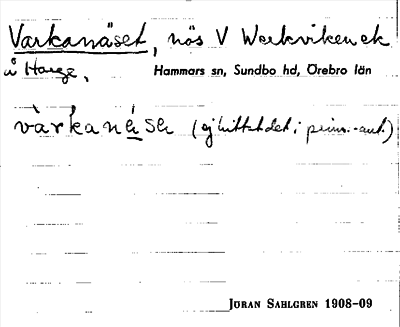 Varkanäset, näs V Werkviken ek
å Harge, Hammars sn, Sundbo hd, Örebro län
varkanèse (ej hittat det i prim.-ant.)
JÖRAN SAHLGREN 1908-09